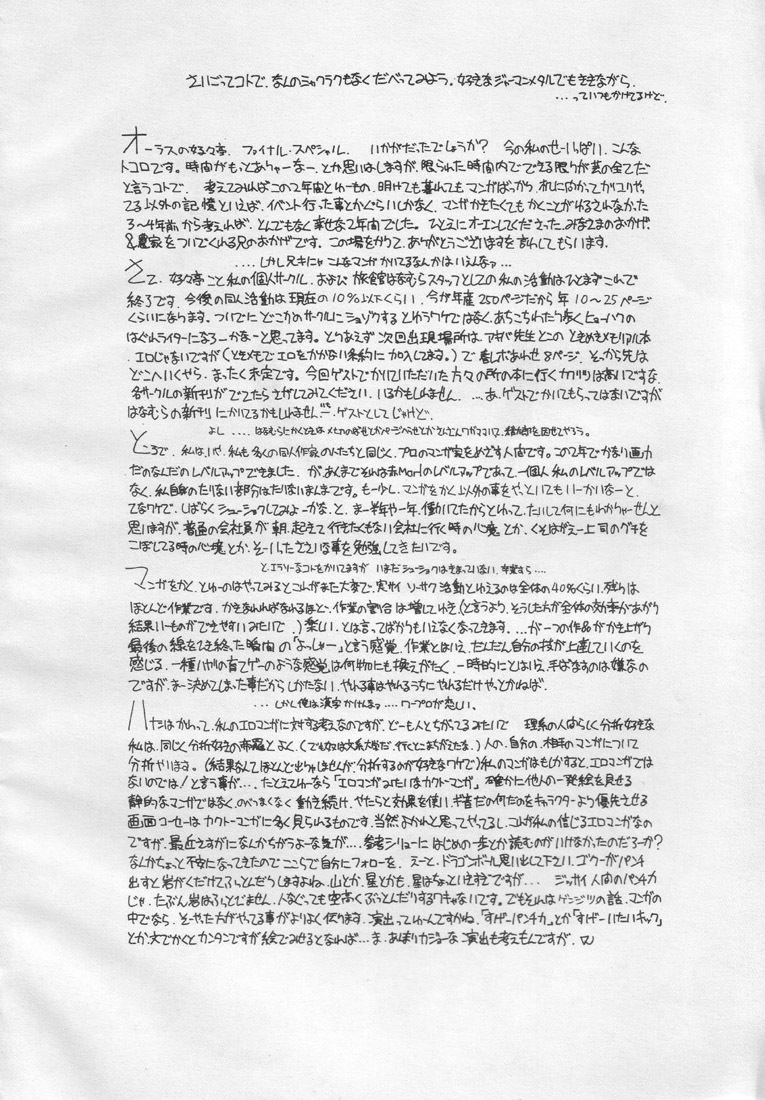 さいごってコトで、なんのミャクラクもなくだべってみよう。好きなジャーマンメタルでもききながら.
...っていつもかけてるけど.
オーラスの好々亭、ファイナル・スペシャル、いかがだったでしょうか? 今の私のせーいっぱい、こんな
トコロです。時間がもっとありゃーなー、とか思いはしますが、限られた時間内でできる限りが芸の全てだ
と言うコトで、考えてみればこの2年間とゆーもの、明けても暮れてもマンガばっかり、机に向かってカリコリやっ
てる以外の記憶といえば、イベント行った事とかぐらいしかなく、マンガかきたくてもかくことがゆるされなかった
3〜4年前から考えれば、とんでもなく幸せな2年間でした。ひとえにオーエンしてくださった、みなさまのおかげ、
&農家をついでくれる兄のおかげです。この場をかりて、ありがとうございますを言わしてもらいます。
....しかし兄キにゃこんなマンガかいてるなんかはいえんなァ...
さて、好々亭こと私の個人サークル、および旅館はなむらスタッフとしての私の活動はひとまずこれで
終了です。今後の同人活動は現在の10%以下くらい、今が年産250ページだから年10〜25ページ
くらいになります。ついでにどこかのサークルにショゾクするとゆうワケではなく、あちこちわたり歩く、ヒョーハクの
はぐれライターになろーかなーと思ってます。とりあえず次回出現場所は、アキバ先生とこのときめきメモリアル本、
エロじゃないですが(ときメモでエロをかかない条約に加入してます。)で差しおあわせ8ページ、そっから先は
どこへいくやら、まったく未定です。今回ゲストでかいていただいた方々の所の本に行くカクリツは高いですな、
各サークルの新刊がでてたらさがしてみてください、いるかもしれません。...あ、ゲストでかいてもらってはないですが
はなむらの新刊にかいてるかもしれません、ゲストとしてじゃけど、
ところで、私は、いや、私も多くの同人作家の人たちと同じく、プロのマンガ家をめざす人間です。この2年でかなり画力
だのなんだのレベルアップできました、があくまでそれは赤Moriのレベルアップであって、一個人私のレベルアップでは
なく、私自身のたりない部分はたりないまんまです。も一少し、マンガをかく以外の事をやっといてもいーかいなーと、
てなワケで、しばらくシューショクしてみよーかな、と、まー半年や一年、働いてたからとゆって、たいして何にもわかりゃーせんと
思いますが、普通の会社員が朝、起きて行きたくもない会社に行く時の心境とか、くそばがえー上司のグチを
こぼしてる時の心境とか、そーいったささいな事を勉強してきたいです。
と、エラソーなコトをかいてますが いまだシューショクはきまっていない、卒業すら....
マンガをかく、とゆーのはやってみるとこれがまた大変で、実サイ ソーサク活動といえるのは全体の40%くらい、残りは
ほとんど作業です。かきなれればなれるほど、作業の割合は増していき、(と言うより、そうした方が全体の効率があがり
結果いーものができやすいみたいで、)楽しい、とは言ってばかりもいえなくなってきます。...が一つの作品がかき上がり
最後の線をひき終った瞬間の「よっしゃー」と言う感覚、作業とはいえ、だんだん自分の技が上達していくのを
感じる、一種ハヤリの育てゲーのような感覚は何物にも換えがたく、一時的にとはいえ、手ばなすのは嫌なの
ですが、まー決めてしまった事だからしかたない、やれる事はやれるうちにやれるだけやっとかねば.
...しかし俺は漢字かけんなァ....ワープロが恋しい、
ハナシはかわって、私のエロマンガに対する考えなのですが、どーも人とちがってるみたいで 理系の人はらしく分析好きな
私は、同じく分析好きの帝羅とよく、(でもヤツは文系大学だ、行くとこまちがえたな、)人の、自分の、相手のマンガについて
分析やります。(結果なんてほとんど出りゃしませんが、分析するのが好きなワケで)私のマンガはもしかすると、エロマンガでは
ないのでは!と言う事が...たとえてゆーなら「エロマンガみたいなカクトーマンガ」、確かに他人の一発絵を見せる
静的なマンガではなく、のべつまくなく動き続け、やたらと効果を使い、ギ音だの何だのをキャラクターより優先させる
画面コーセーはカクトーマンガに多く見られるものです。当然よかれと思ってやってるし、コレが私の信じるエロマンガなの
ですが、最近さすがになんかちがうよーな気が....参考シリョーにはじめの一歩とか読むのがいけなかったのだろーか?
なんかちょっと不安になってきたのでここらで自分にフォローを、えーと、ドラゴンボール思い出して下さい、ゴクーがパンチ
出すと岩がくだけてふっとんだりしますよね、山とか、星とかも、星はちょっといきすぎですが... ジッサイ人間のパンチ力
じゃ、たぶん岩はふっとびません、人なぐっても空高くぶっとんだりするワキャないです。でもそれはゲンジツの話、マンガの
中でなら、そーやった方がやってる事がよりよく伝わります。演出ってゆーんですかね、「すげーパンチ力」とか「すげーいたいキック」
とか文でかくとカンタンですが絵でみせるとなれば...ま、あんまりカジョーな演出も考えもんですが、